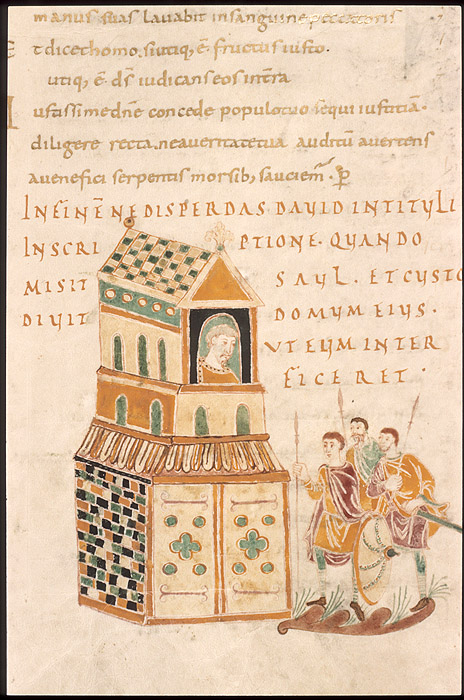 manus suas lavabit in sanguine peccatoris
t dicet homo. si utiq, ē fructus iusto.
utiq, ē dſ iudicans eos in tr̄a
ustissime dn̄e concede populo tuo sequi iustitiā.
diligere recta. ne a veritate tua auditū avertens
a venefici serpentis morsib, saucietur̄. P
IN FINĒ NE DISPERDAS. DAVID IN TITULI
INSCRI PTIONE. QUANDO
MISIT SAUL. ET CUSTO
DIUIT DOMUM EIUS.
UT EUM INTER
FICERET.